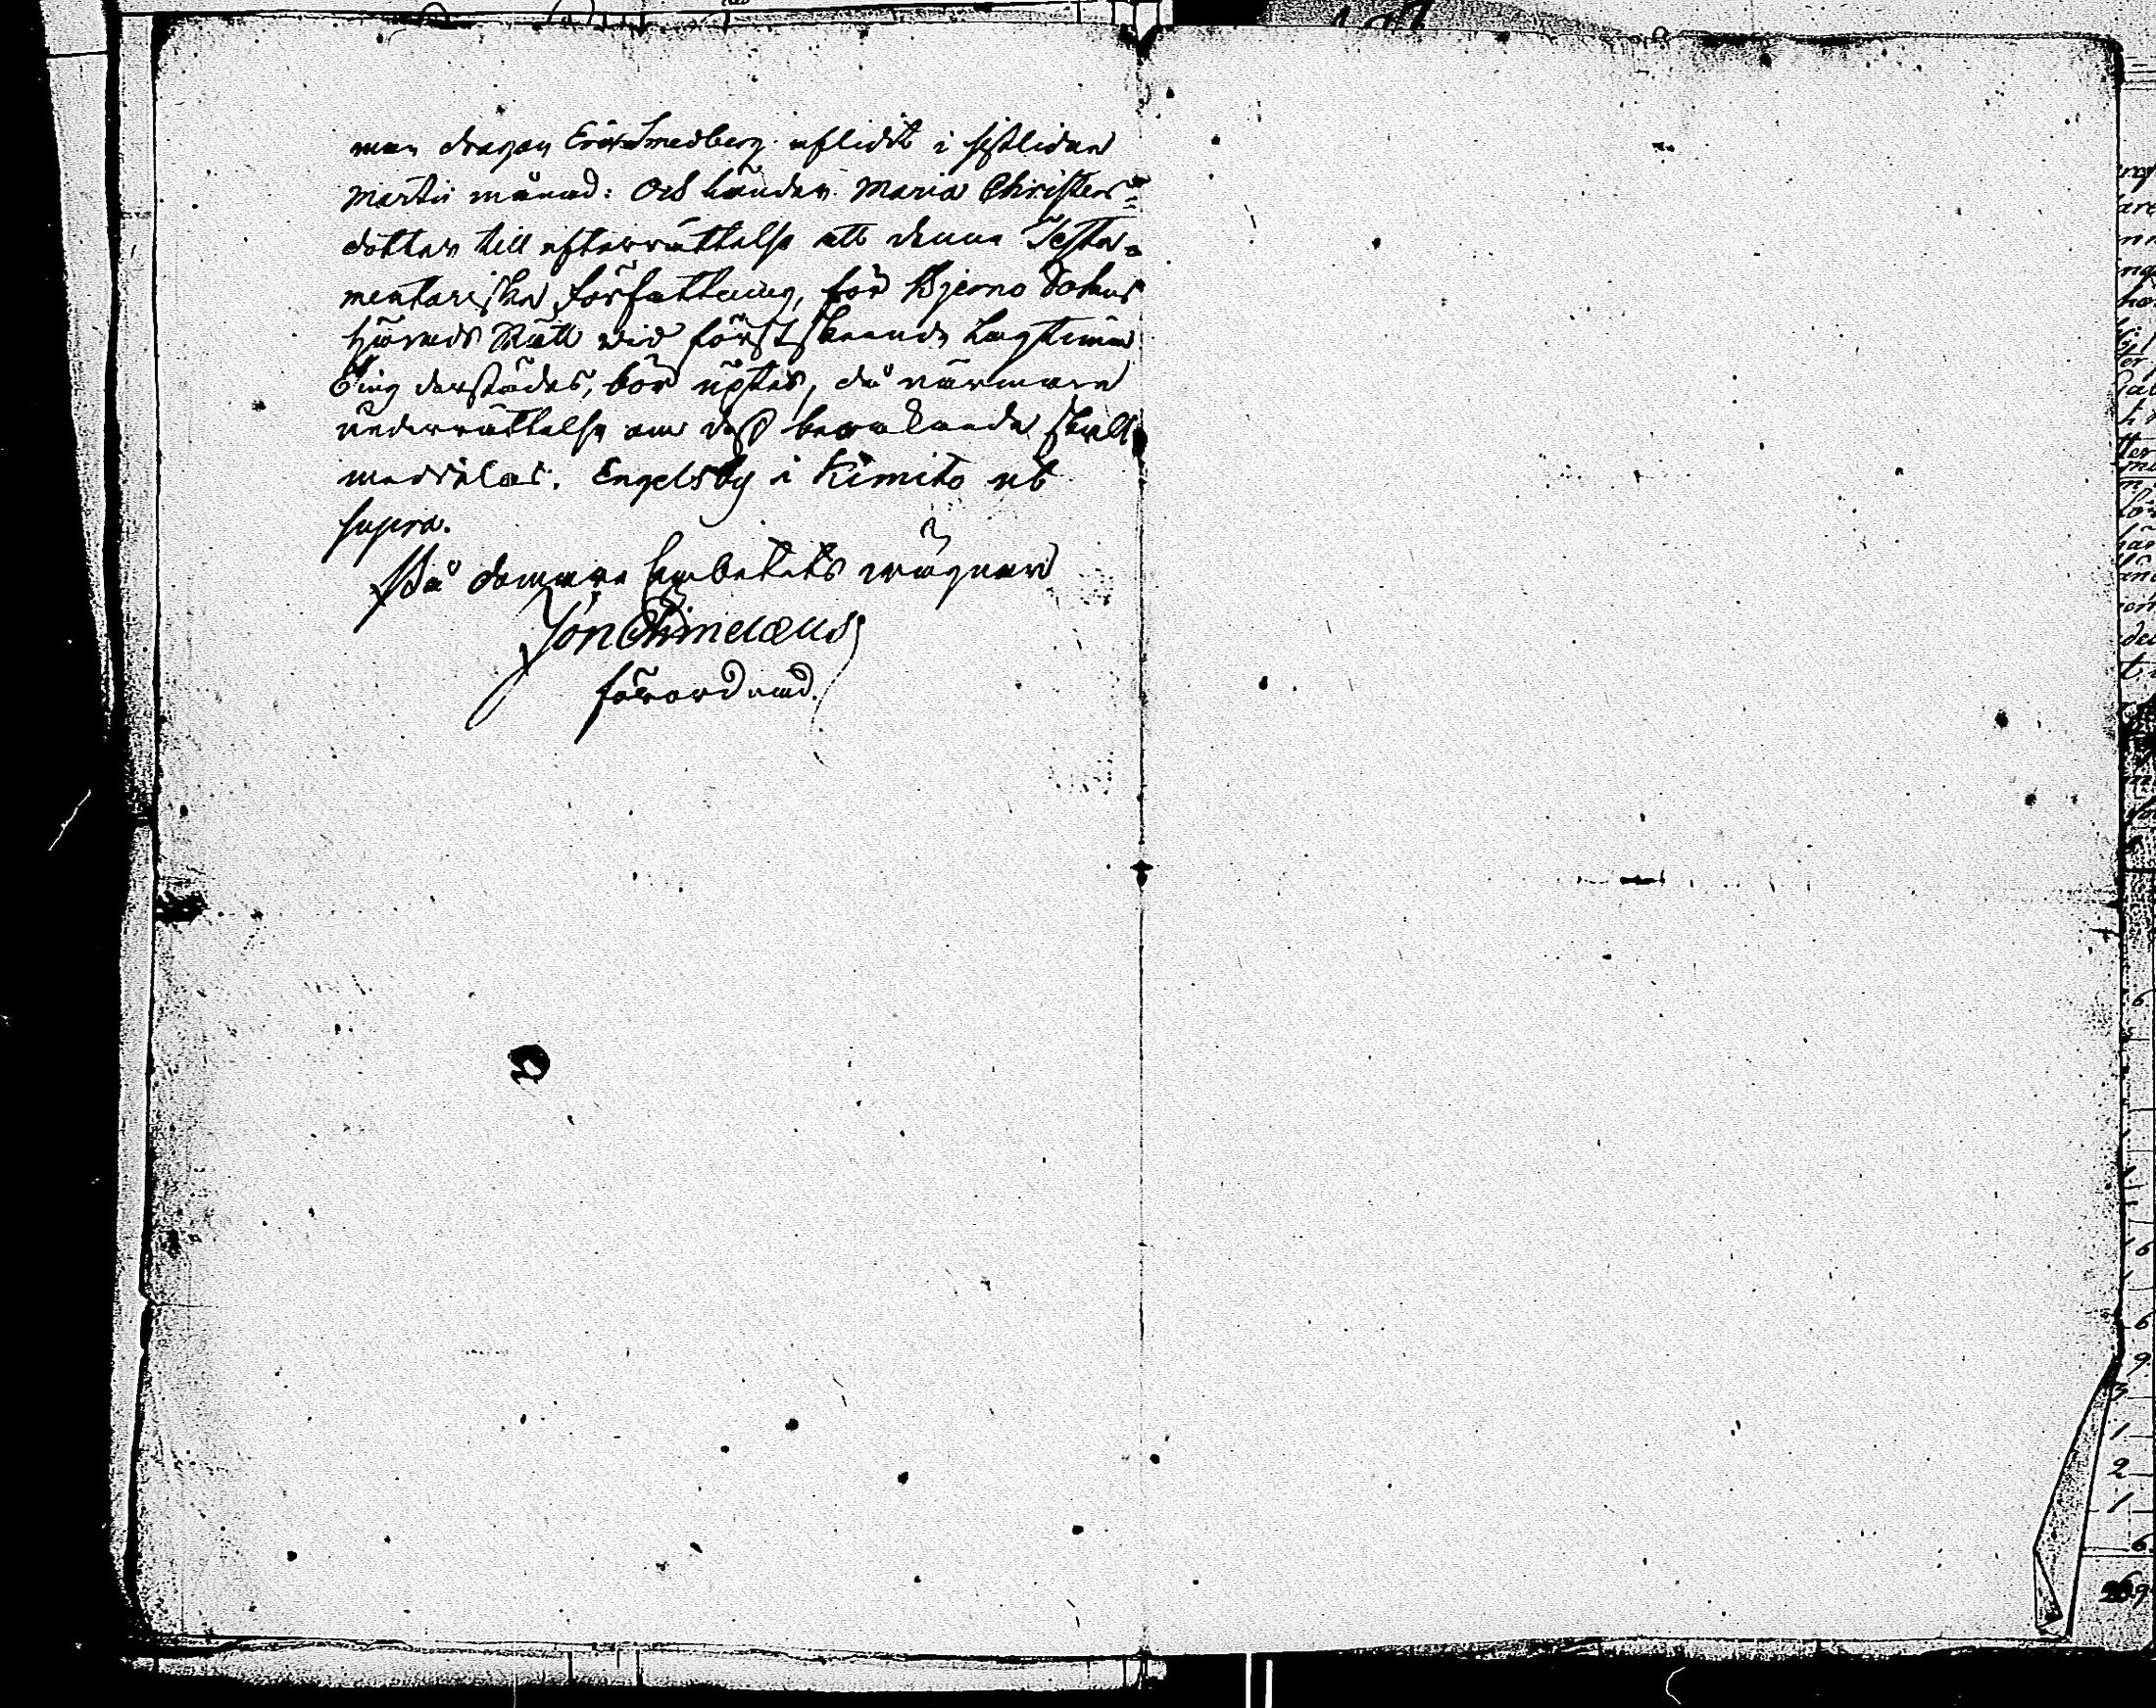 man dragon Eric Smedberg aflidit i sistledne
Martii månad: Och länder Maria Christers=
dotter till efterrättelse att denna Testa=
mentariska författning, för Bjerno Sokns
härads Rätt wid förstskeende Lagtima
Ting derstädes, bör uptes, då närmare
underrättelse om dess bewakande skall
meddelas. Engelsby i Kimito ut
supra.
På domare Embetets wägnar
förordnad.